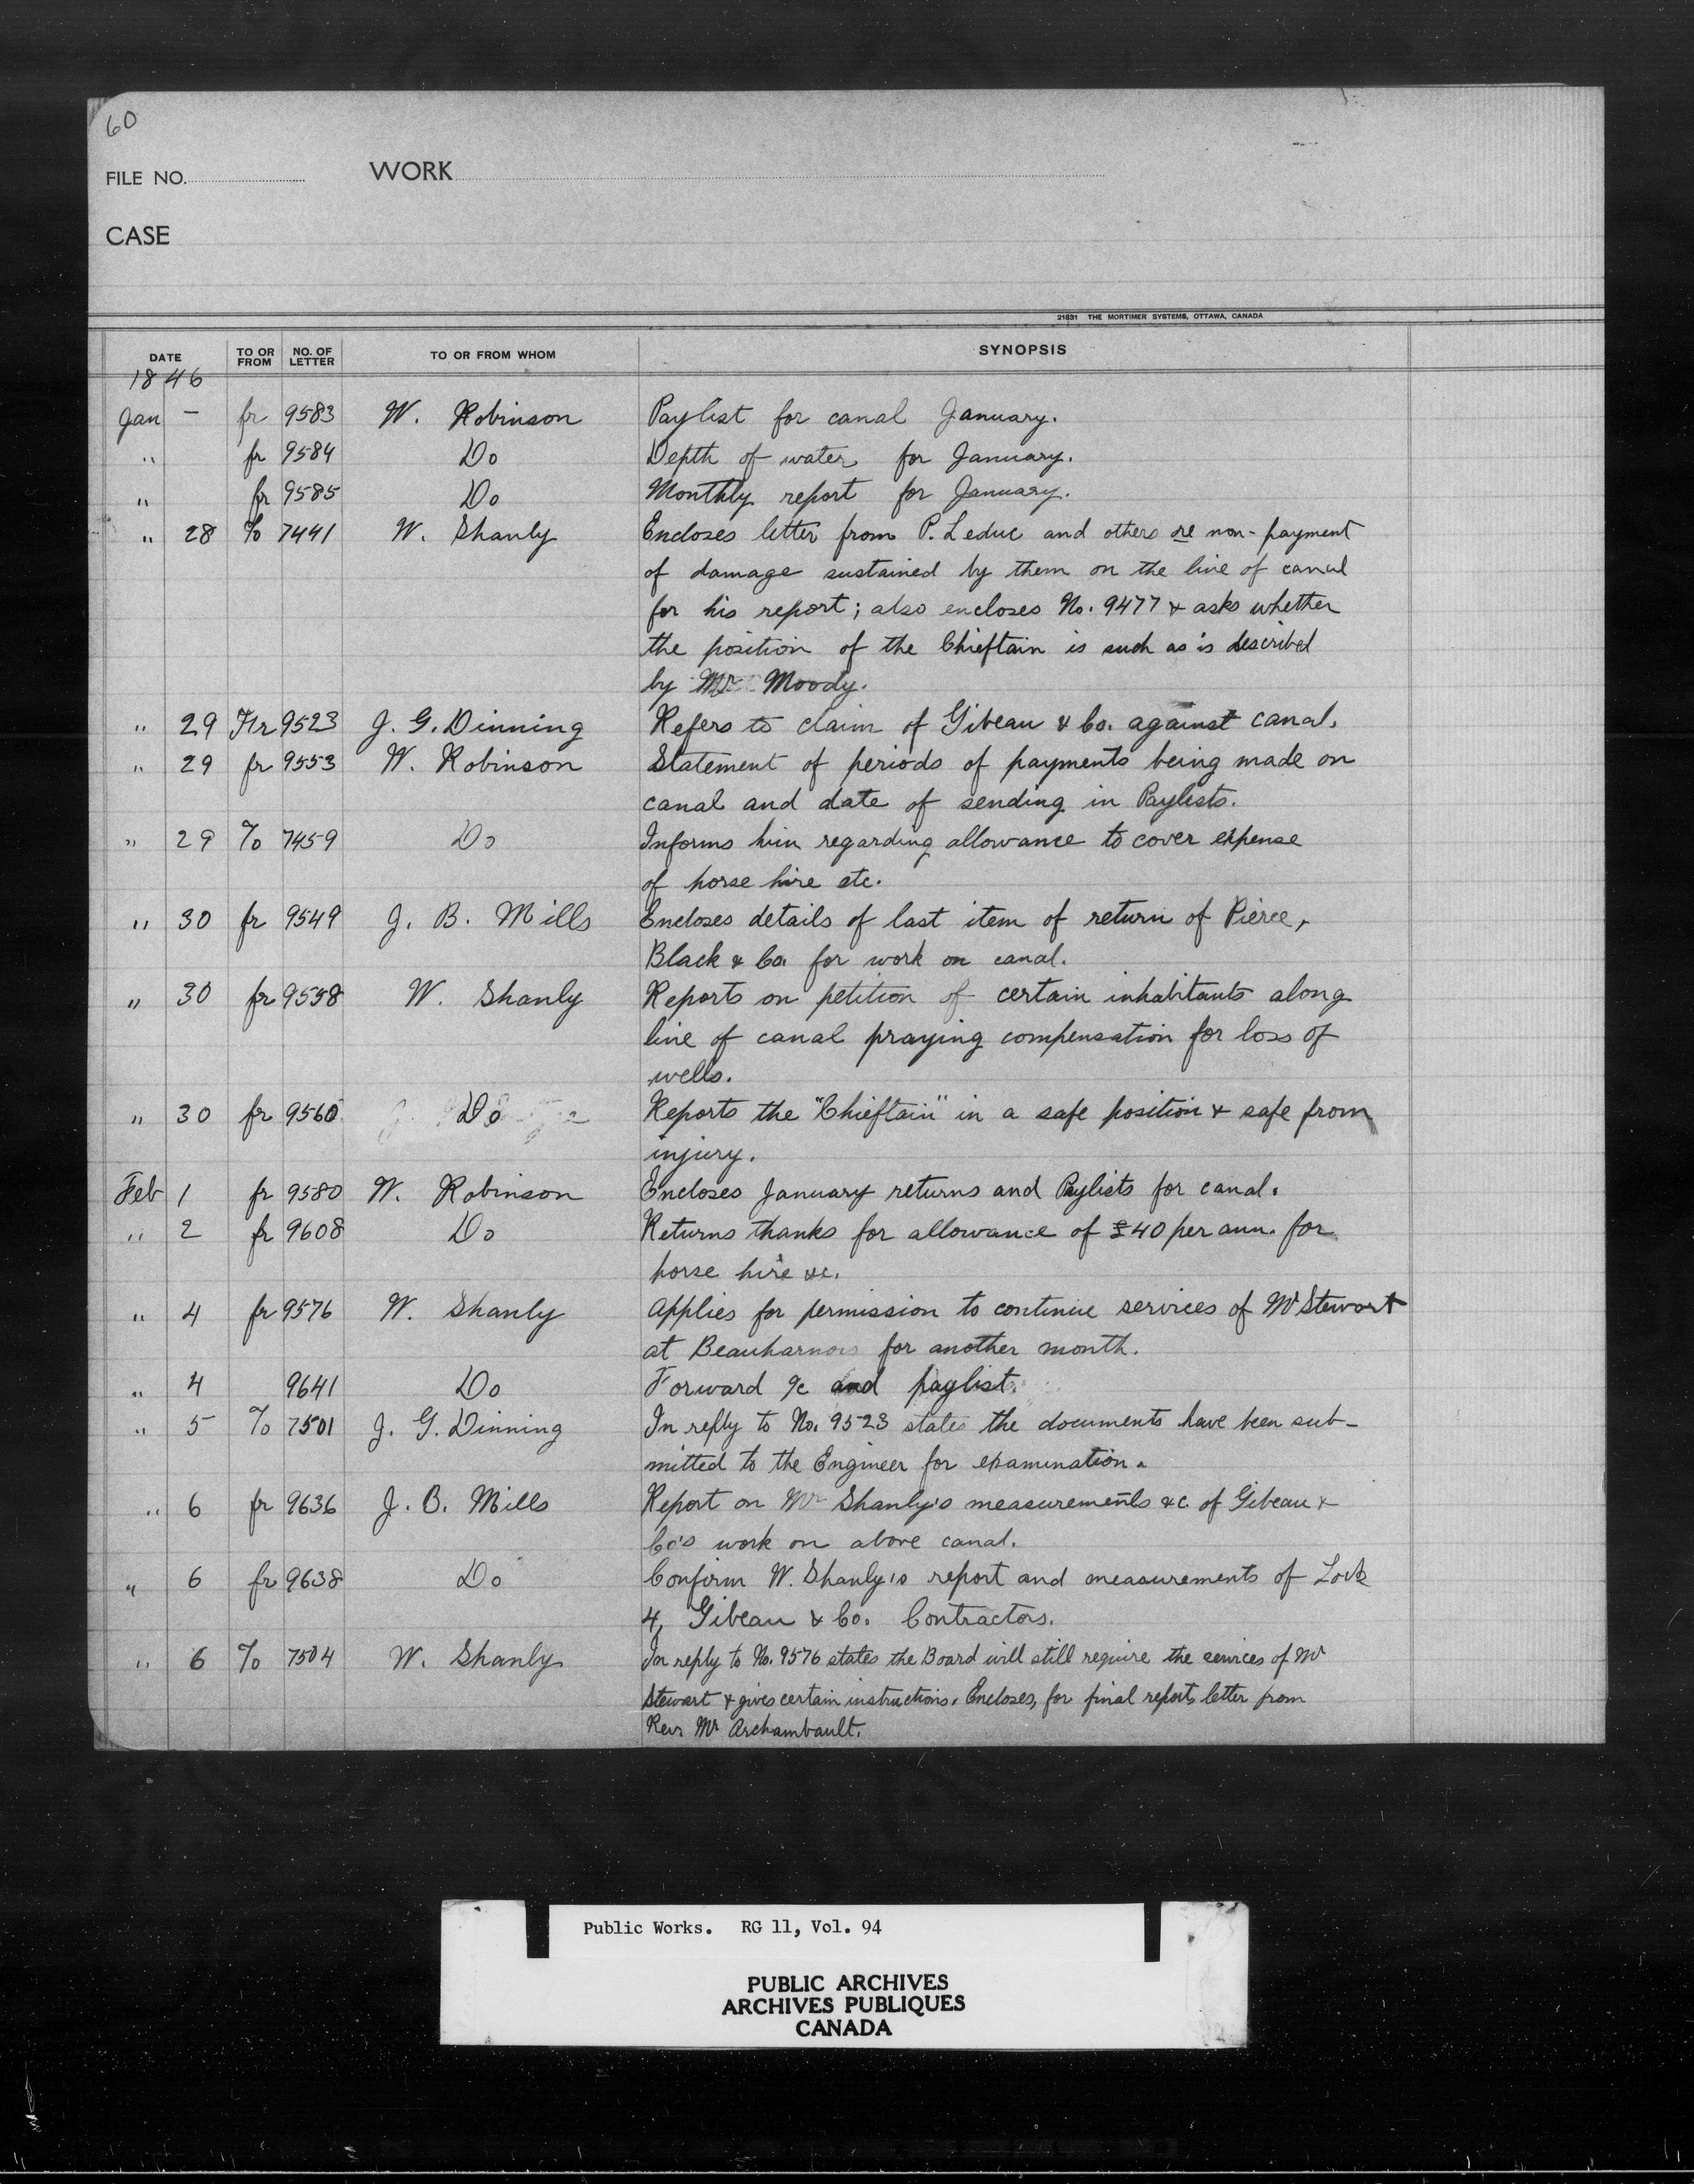 60
FILE NO. WORK
CASE
21831 THE MORTIMER SYSTEMS, OTTAWA, CANADA
DATE TO OR FROM NO. OF LETTER TO OR FROM WHOM SYNOPSIS
1846
Jan - fr 9583 W. Robinson Paylist for canal January.
" fr 9584 Do Depth of water for January.
" fr 9585 Do Monthly report for January.
" 28 To 7441 W. Shanly Encloses letter from P. Leduc and others re non-payment
of damage sustained by them on the line of canal
for his report; also encloses No. 9477 & asks whether
the position of the Chieftain is such as is described
by Mr Moody.
" 29 Fr 9523 J. G. Dinning Refers to claim of Gibeau & Co. against canal.
" 29 fr 9553 W. Robinson Statement of periods of payments being made on
canal and date of sending in Paylists.
" 29 To 7459 Do Informs him regarding allowance to cover expense
of horse hire etc.
" 30 fr 9549 J. B. Mills Encloses details of last item of return of Pierce,
Black & Co. for work on canal.
" 30 fr 9558 W. Shanly Reports on petition of certain inhabitants along
line of canal praying compensation for loss of
wells.
" 30 fr 9560 Do Reports the "Chieftain" in a safe position & safe from
injury.
Feb 1 fr 9580 W. Robinson Encloses January returns and Paylists for canal.
" 2 fr 9608 Do Returns thanks for allowance of £40 per ann. for
horse hire &c.
" 4 fr 9576 W. Shanly Applies for permission to continue services of Mr Stewart
at Beauharnois for another month.
" 4 9641 Do Forward %c and paylist.
" 5 To 7501 J. G. Dinning In reply to No. 9523 states the documents have been sub-
mitted to the Engineer for examination.
" 6 fr 9636 J. B. Mills Report on Mr Shanly's measurements &c of Gibeau &
Co's work on above canal.
" 6 fr 9638 Do Confirm W. Shanly's report and measurements of Lock
4, Gibeau & Co. Contractors.
" 6 To 7504 W. Shanly In reply to No. 9576 states the Board will still require the services of Mr
Stewart & gives certain instructions. Encloses, for final report, letter from
Revr Mr Archambault.
Public Works. RG 11, Vol. 94
PUBLIC ARCHIVES
ARCHIVES PUBLIQUES
CANADA